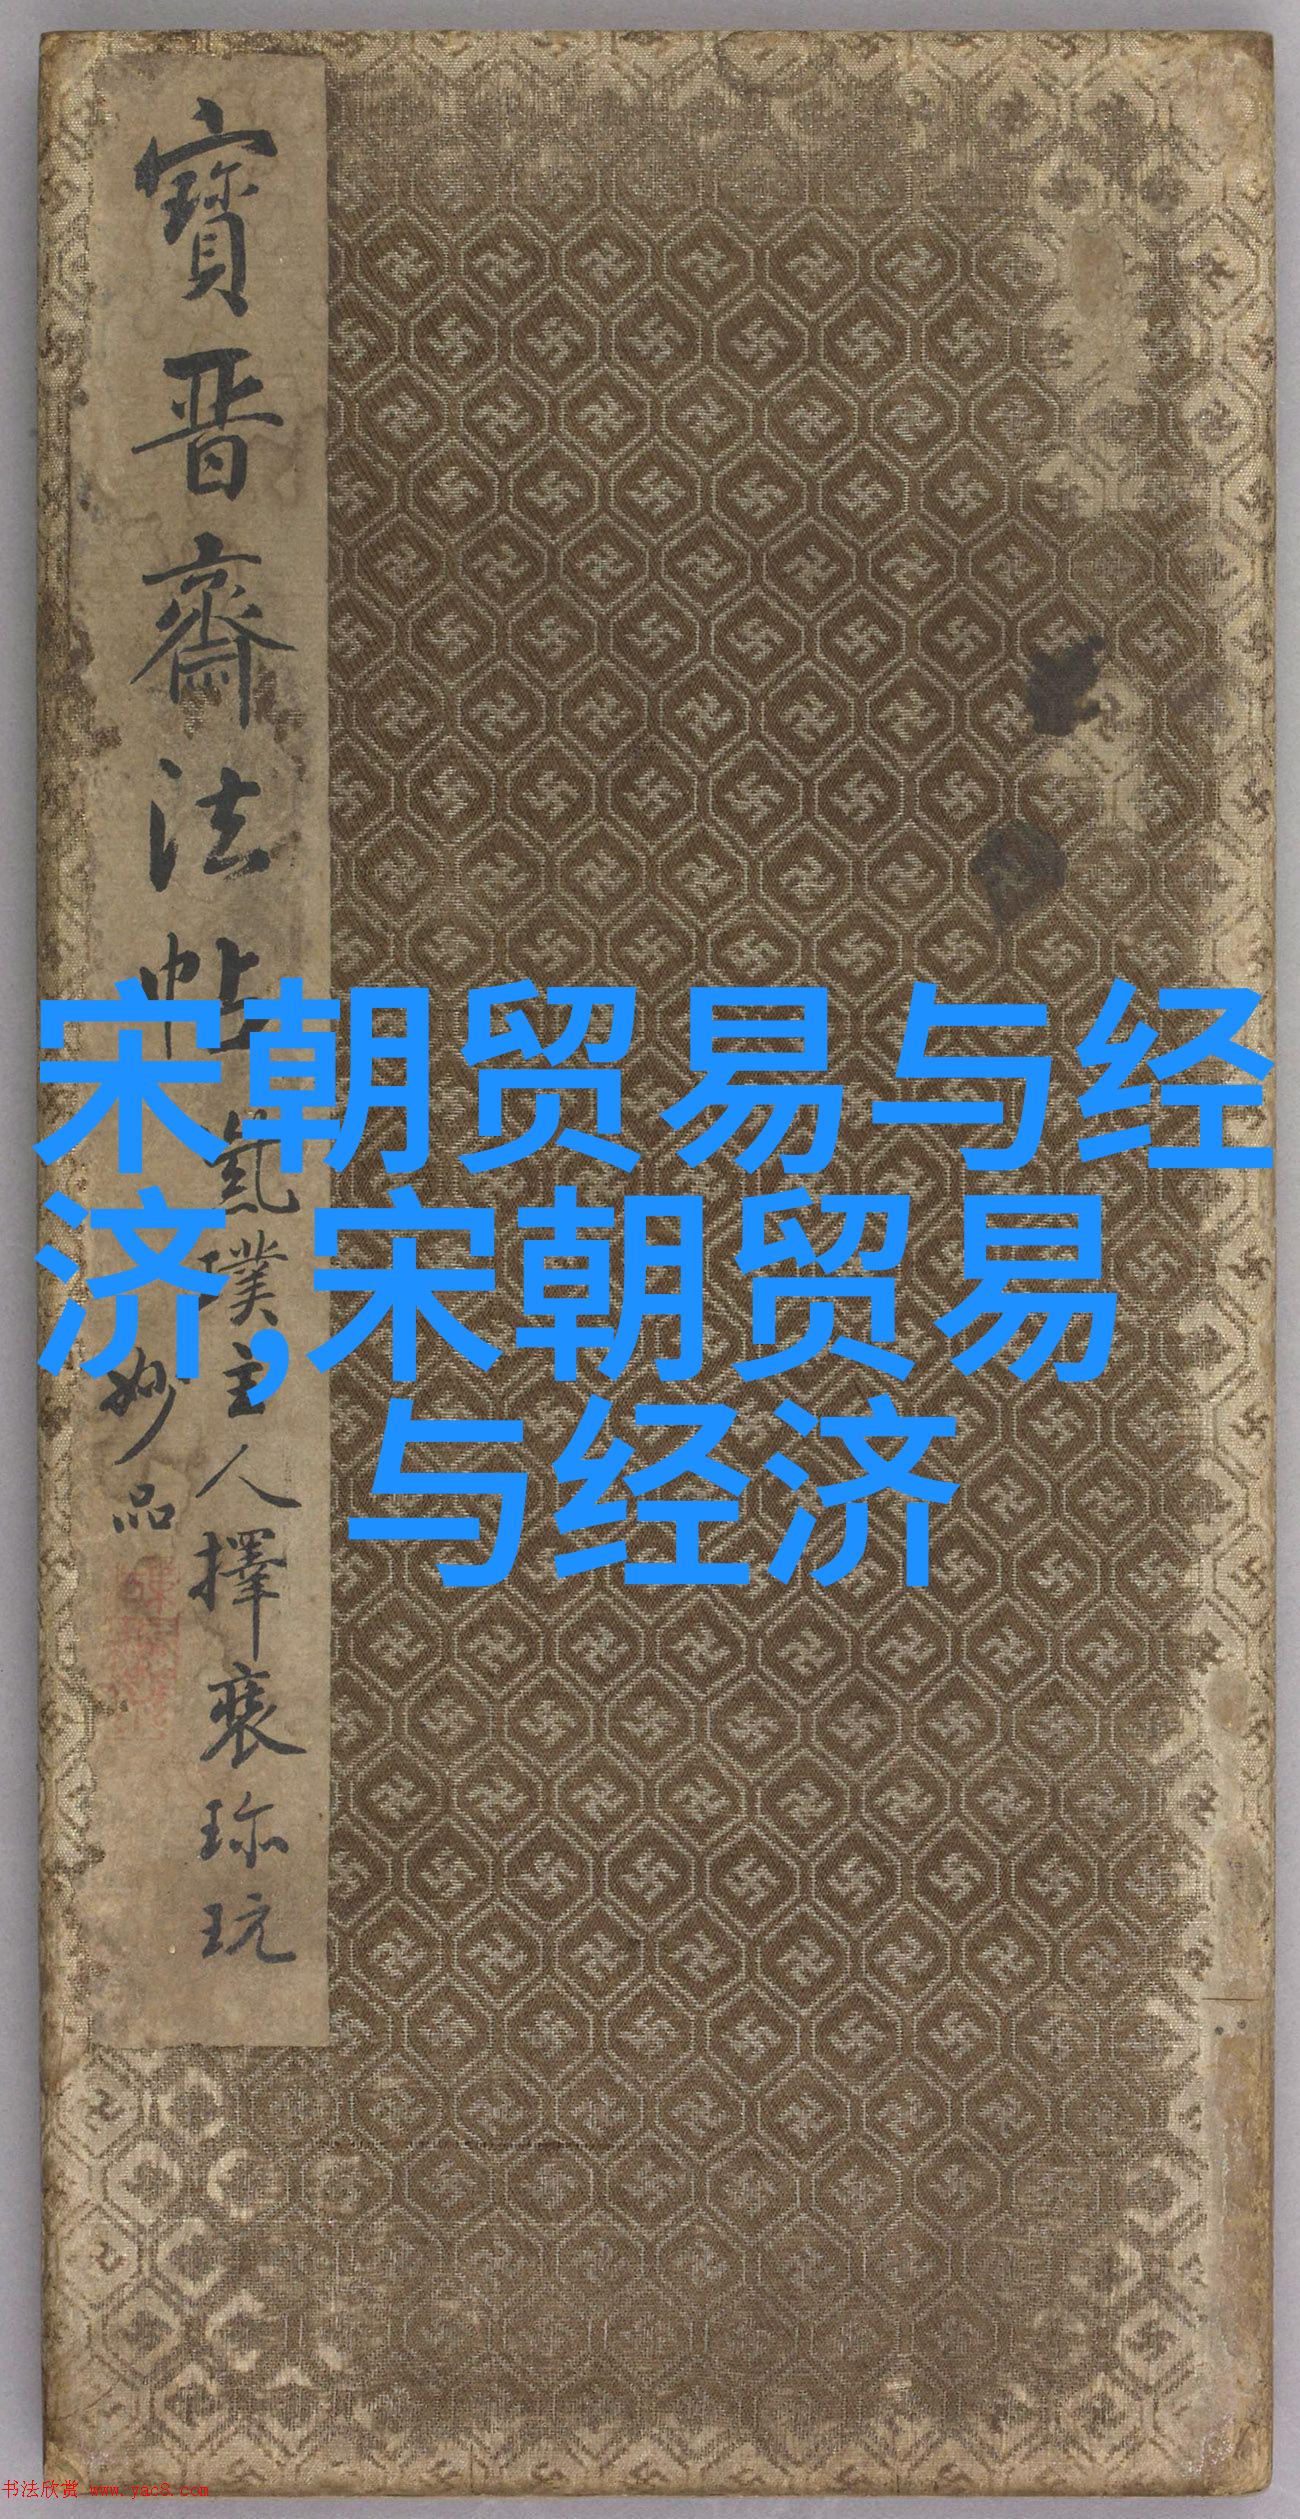 寶晋齋法帖
氊璞主人擇裘珎玩
妙品
宋朝贸易与经
济,宋朝贸易
与经济
书法欣赏 www.yac8.com